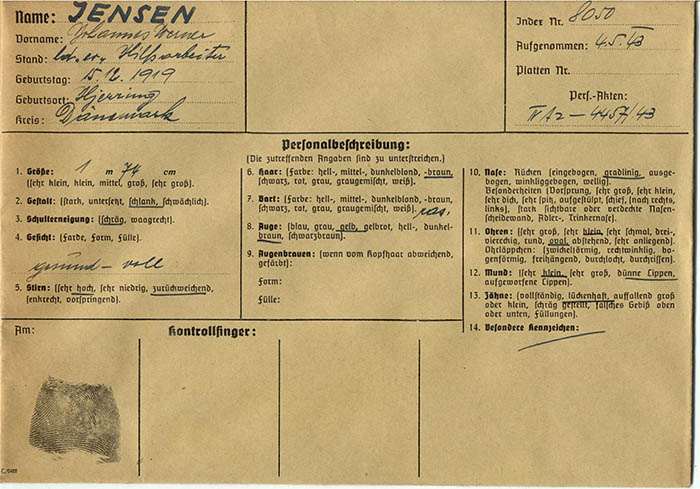 Name: JENSEN
Vorname: Johannes Werner
Stand: ld. ev. Hilfsarbeiter
Geburtstag: 15.12.1919
Geburtsort: Hjerring
Kreis: Dänemark
Index Nr. 8050
Aufgenommen: 4.5.43
Platten Nr.
Pers.-Akten:
IV A2 – 4457/43
Personalbeschreibung:
(Die zutreffenden Angaben sind zu unterstreichen.)
1. Größe: 1 m 74 cm
(sehr klein, klein, mittel, groß, sehr groß).
2. Gestalt: (stark, untersetzt, schlank, schwächlich).
3. Schulterneigung: (schräg, waagrecht).
4. Gesicht: (Farbe, Form, Fülle).
gesund – voll
5. Stirn: (sehr hoch, sehr niedrig, zurückweichend,
senkrecht, vorspringend).
6. Haar: (Farbe: hell-, mittel-, dunkelblond, -braun,
schwarz, rot, grau, graugemischt, weiß).
7. Bart: (Farbe: hell-, mittel-, dunkelblond, -braun,
schwarz, rot, grau, graugemischt, weiß). ras.
8. Auge: (blau, grau, gelb, gelbrot, hell-, dunkel-
braun, schwarzbraun).
9. Augenbrauen: (wenn vom Kopfhaar abweichend,
gefärbt):
Form:
Fülle:
10. Nase: Rücken (eingebogen, gradlinig, ausge-
bogen, winkliggebogen, wellig).
Besonderheiten (Vorsprung, sehr groß, sehr klein,
sehr dick, sehr spitz, aufgestülpt, schief, [nach rechts,
links], stark sichtbare oder verdeckte Nasen-
scheidewand, Adler-, Trinkernase).
11. Ohren: (sehr groß, sehr klein, sehr schmal, drei-,
viereckig, rund, oval, abstehend, sehr anliegend).
Ohrläppchen: (zwickelförmig, rechtwinklig, bo-
genförmig, freihängend, durchlocht, durchrissen).
12. Mund: (sehr klein, sehr groß, dünne Lippen,
aufgeworfene Lippen).
13. Zähne: (vollständig, lückenhaft, auffallend groß
oder klein, schräg gestellt, falsches Gebiß oben
oder unten, Füllungen).
14. Besondere Kennzeichen:
Am:
Kontrollfinger: